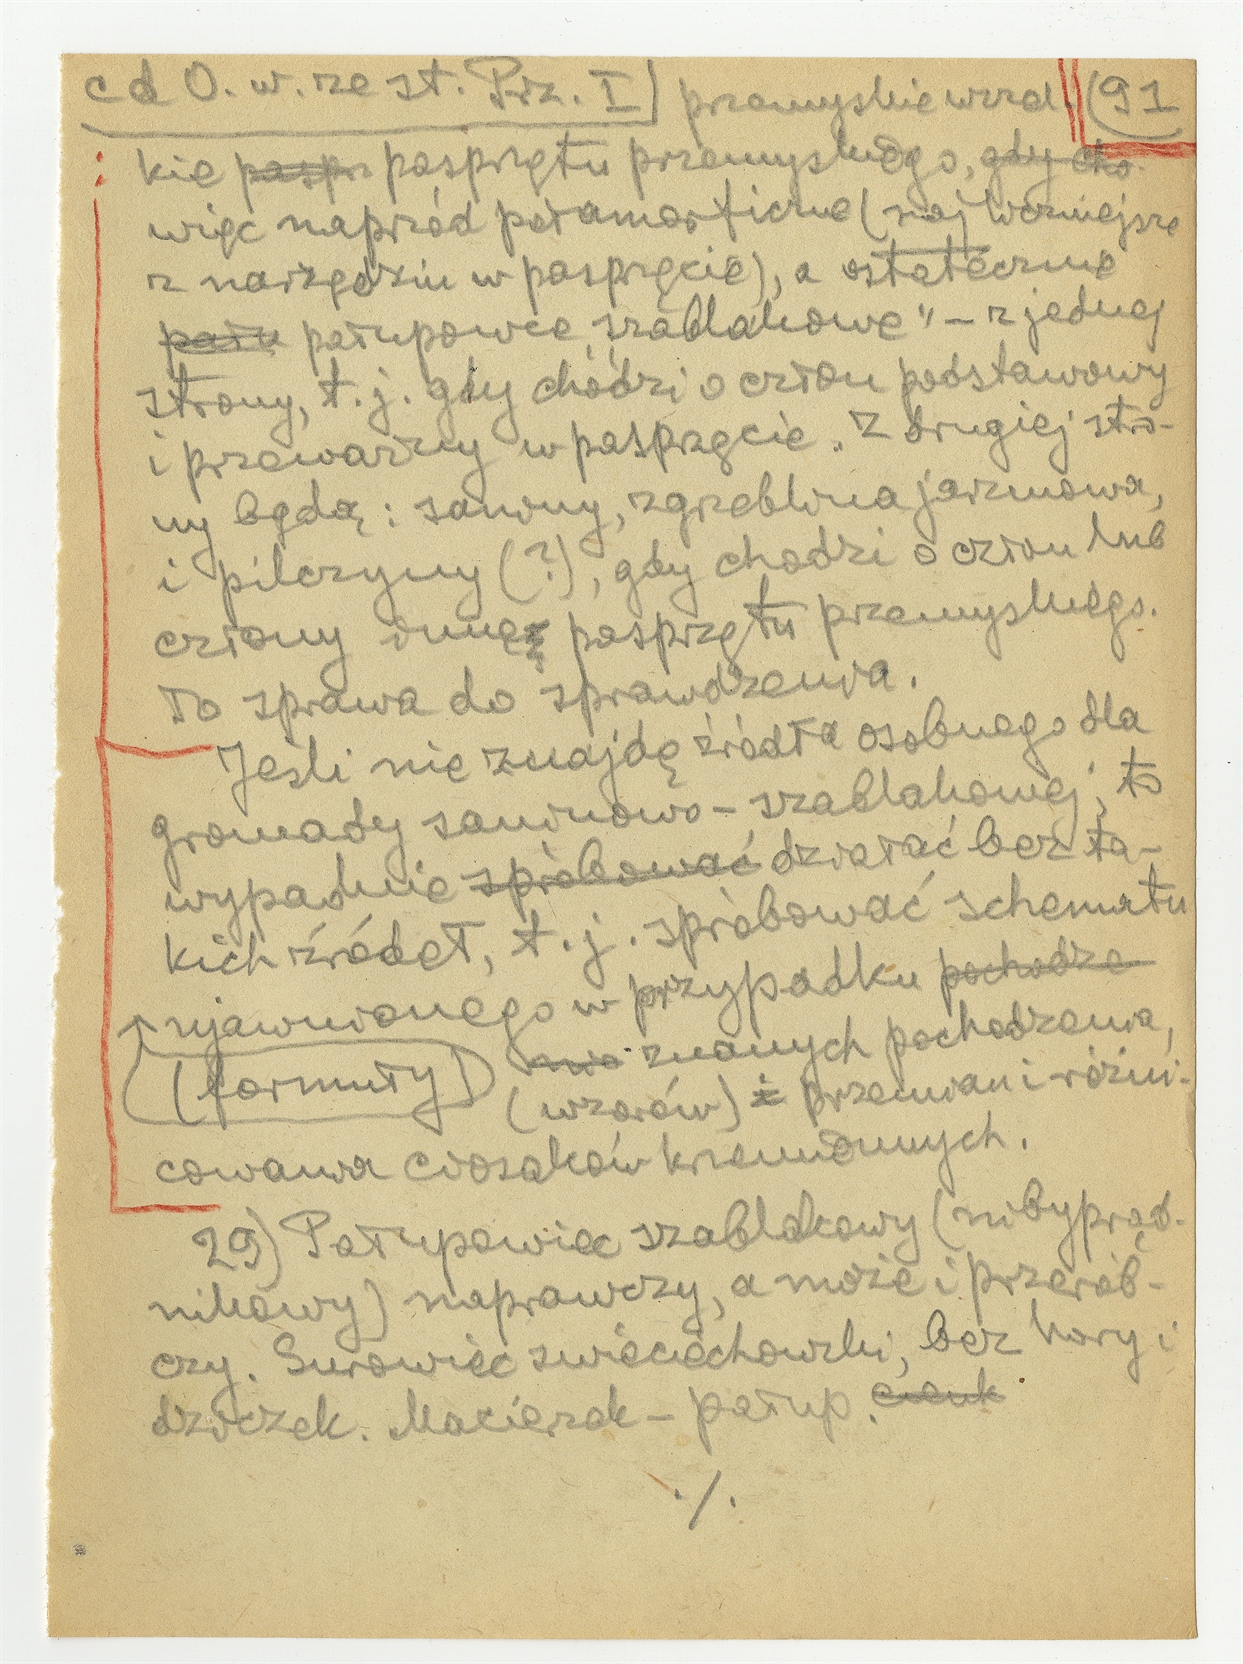 c d O. w. ze st. Prz. I przemyskie wzod. 91
kie ~~pasprz~~ posprzętu przemyskiego, ~~gdy cho.~~
więc naprzód patamorficzne (najliczniejsze
z narzędziu w posprzęcie), a ostatecznie
~~patu~~ patupowce „szablakowe” – z jednej
strony, t. j. gdy chodzi o człon podstawowy
i przeważny w posprzęcie. Z drugiej stro-
ny będą: sawiny, zgrzeblina jarzmowa,
i pilczyny (?), gdy chodzi o człon lub
człony inne posprzętu przemyskiego.
To sprawa do sprawdzenia.
Jeśli nie znajdę źródła osobnego dla
gromady sawinowo-szablakowej, to
wypadnie ~~spróbować~~ działać bez ta-
kich źródeł, t. j. spróbować schematu
ujawnionego w przypadku ~~pochodze~~
(formuły) znanych pochodzenia,
(wzorów) przemian i różni-
cowania ciosaków krzemionnych.
29) Patupowiec szablakowy (nibyprąd-
nikowy) naprawczy, a może i przerób-
czy. Surowiec świeciechowski, bez kory i
dziczek. Macierzak – patup. ~~cienk~~
./.